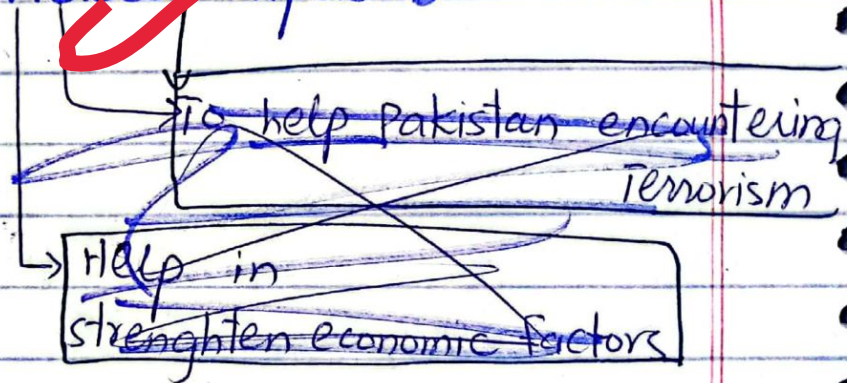 To help Pakistan encountering
Terrorism
Help in
strenghten economic factors